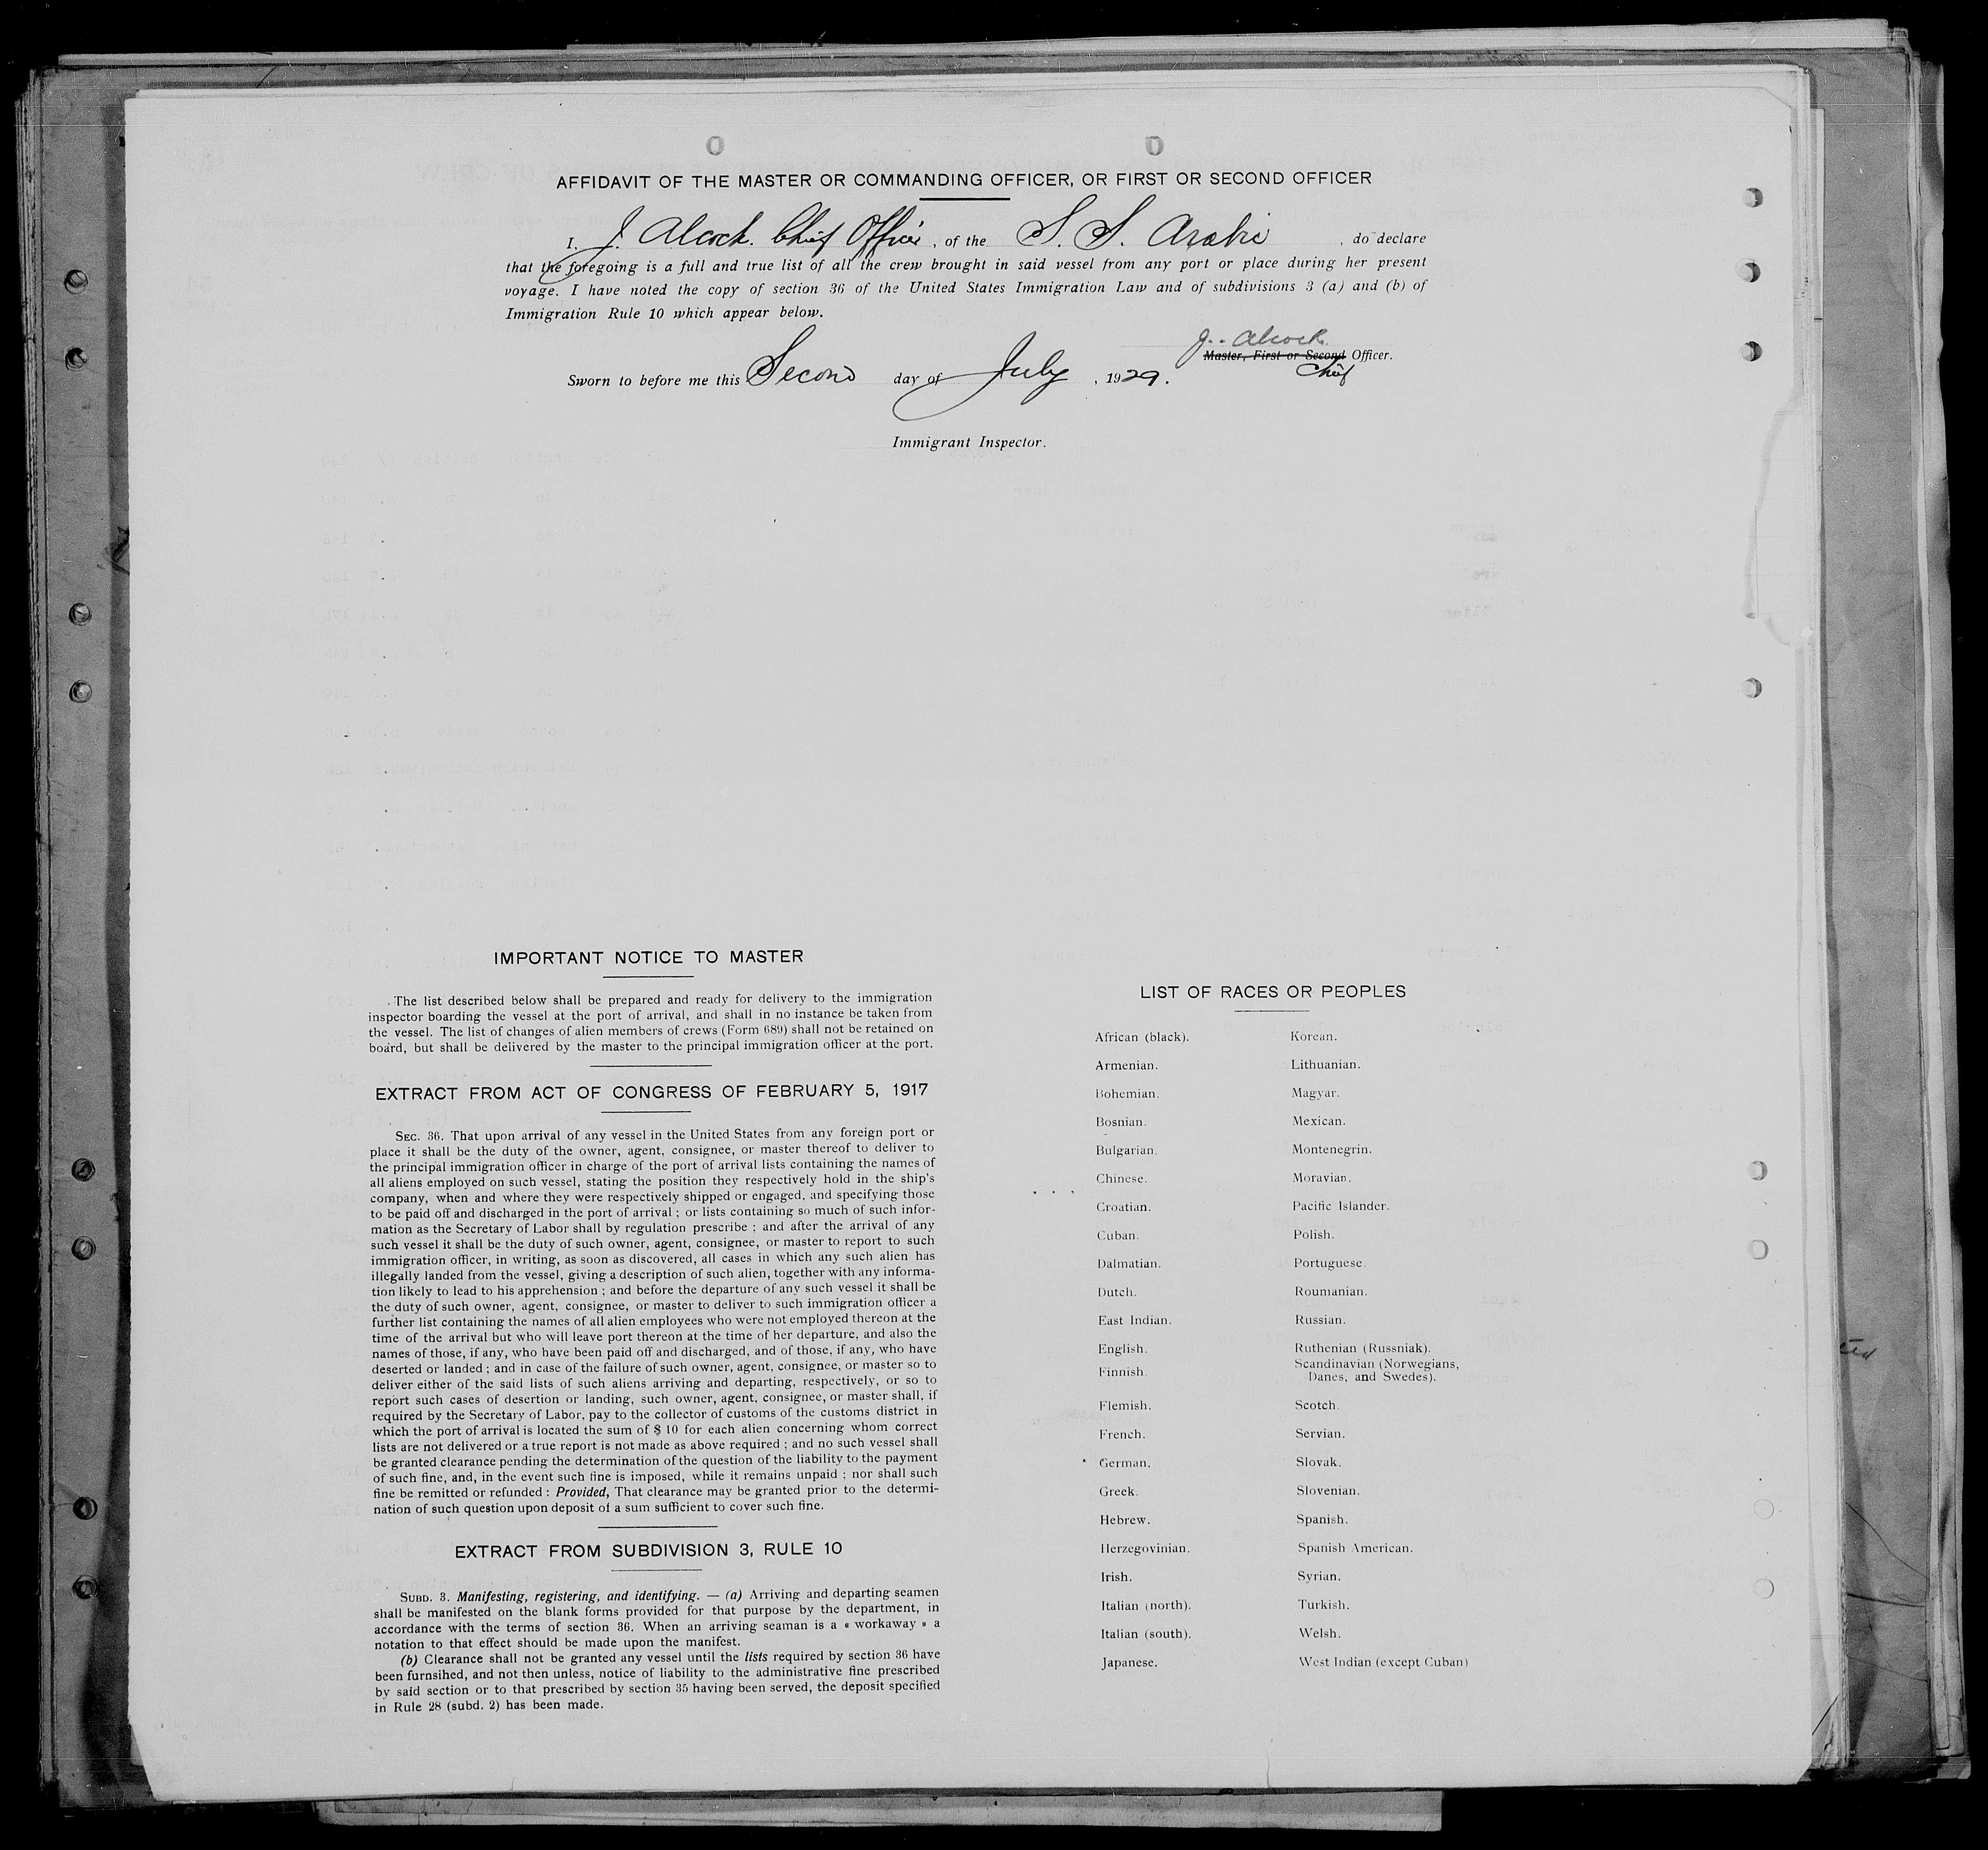 AFFIDAVIT OF THE MASTER OR COMMANDING OFFICER, OR FIRST OR SECOND OFFICER
I, J. Alcock. Chief Officer, of the S. S. Arabic, do declare
that the foregoing is a full and true list of all the crew brought in said vessel from any port or place during her present
voyage. I have noted the copy of section 36 of the United States Immigration Law and of subdivisions 3 (a) and (b) of
Immigration Rule 10 which appear below.
J. Alcock
Master, First or Second Officer.
Chief
Sworn to before me this Second day of July, 1929.
Immigrant Inspector.
IMPORTANT NOTICE TO MASTER
The list described below shall be prepared and ready for delivery to the immigration
inspector boarding the vessel at the port of arrival, and shall in no instance be taken from
the vessel. The list of changes of alien members of crews (Form 689) shall not be retained on
board, but shall be delivered by the master to the principal immigration officer at the port.
EXTRACT FROM ACT OF CONGRESS OF FEBRUARY 5, 1917
SEC. 36. That upon arrival of any vessel in the United States from any foreign port or
place it shall be the duty of the owner, agent, consignee, or master thereof to deliver to
the principal immigration officer in charge of the port of arrival lists containing the names of
all aliens employed on such vessel, stating the position they respectively hold in the ship's
company, when and where they were respectively shipped or engaged, and specifying those
to be paid off and discharged in the port of arrival ; or lists containing so much of such infor-
mation as the Secretary of Labor shall by regulation prescribe ; and after the arrival of any
such vessel it shall be the duty of such owner, agent, consignee, or master to report to such
immigration officer, in writing, as soon as discovered, all cases in which any such alien has
illegally landed from the vessel, giving a description of such alien, together with any informa-
tion likely to lead to his apprehension ; and before the departure of any such vessel it shall be
the duty of such owner, agent, consignee, or master to deliver to such immigration officer a
further list containing the names of all alien employees who were not employed thereon at the
time of the arrival but who will leave port thereon at the time of her departure, and also the
names of those, if any, who have been paid off and discharged, and of those, if any, who have
deserted or landed ; and in case of the failure of such owner, agent, consignee, or master so to
deliver either of the said lists of such aliens arriving and departing, respectively, or so to
report such cases of desertion or landing, such owner, agent, consignee, or master shall, if
required by the Secretary of Labor, pay to the collector of customs of the customs district in
which the port of arrival is located the sum of $ 10 for each alien concerning whom correct
lists are not delivered or a true report is not made as above required ; and no such vessel shall
be granted clearance pending the determination of the question of the liability to the payment
of such fine, and, in the event such fine is imposed, while it remains unpaid ; nor shall such
fine be remitted or refunded : Provided, That clearance may be granted prior to the determi-
nation of such question upon deposit of a sum sufficient to cover such fine.
EXTRACT FROM SUBDIVISION 3, RULE 10
SUBD. 3. Manifesting, registering, and identifying. — (a) Arriving and departing seamen
shall be manifested on the blank forms provided for that purpose by the department, in
accordance with the terms of section 36. When an arriving seaman is a « workaway » a
notation to that effect should be made upon the manifest.
(b) Clearance shall not be granted any vessel until the lists required by section 36 have
been furnsihed, and not then unless, notice of liability to the administrative fine prescribed
by said section or to that prescribed by section 35 having been served, the deposit specified
in Rule 28 (subd. 2) has been made.
LIST OF RACES OR PEOPLES
African (black).
Armenian.
Bohemian.
Bosnian.
Bulgarian.
Chinese.
Croatian.
Cuban.
Dalmatian.
Dutch.
East Indian.
English.
Finnish.
Flemish.
French.
German.
Greek.
Hebrew.
Herzegovinian.
Irish.
Italian (north).
Italian (south).
Japanese.
Korean.
Lithuanian.
Magyar.
Mexican.
Montenegrin.
Moravian.
Pacific Islander.
Polish.
Portuguese.
Roumanian.
Russian.
Ruthenian (Russniak).
Scandinavian (Norwegians,
Danes, and Swedes).
Scotch.
Servian.
Slovak.
Slovenian.
Spanish.
Spanish American.
Syrian.
Turkish.
Welsh.
West Indian (except Cuban)